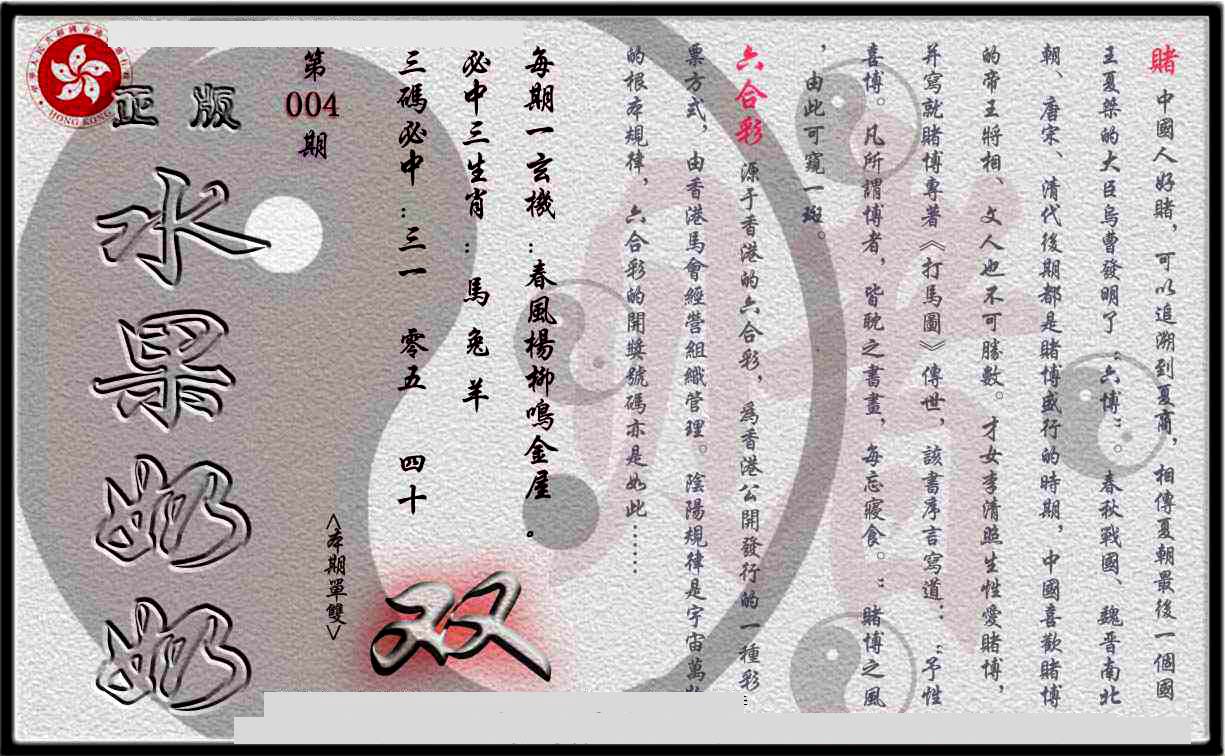 賭 中國人好賭，可以追溯到夏商，相傳夏朝最後一個國
王夏桀的大臣烏曹發明了：六博：春秋戰國、魏晋南北
朝、唐宋、清代後期都是賭博盛行的時期，中國喜歡賭博
的帝王將相、文人也不可勝數。才女李清照生性愛賭博，
并寫就賭博專著《打馬圖》傳世，該書序言寫道：：予性
喜博。凡所謂博者，皆耽之書畫，每忘寢食。：賭博之風
，由此可窺一斑。
六合彩 源于香港的六合彩，爲香港公開發行的一種彩
票方式，由香港馬會經營組織管理。陰陽規律是宇宙萬
的根本規律，六合彩的開獎號碼亦是如此……
每期一玄機：春風楊柳鳴金屋。
必中三生肖：馬 兔 羊
三碼必中：三一 零五 四十
<本期單雙>
双
第
004
期
正版
水果奶奶
HONG KONG